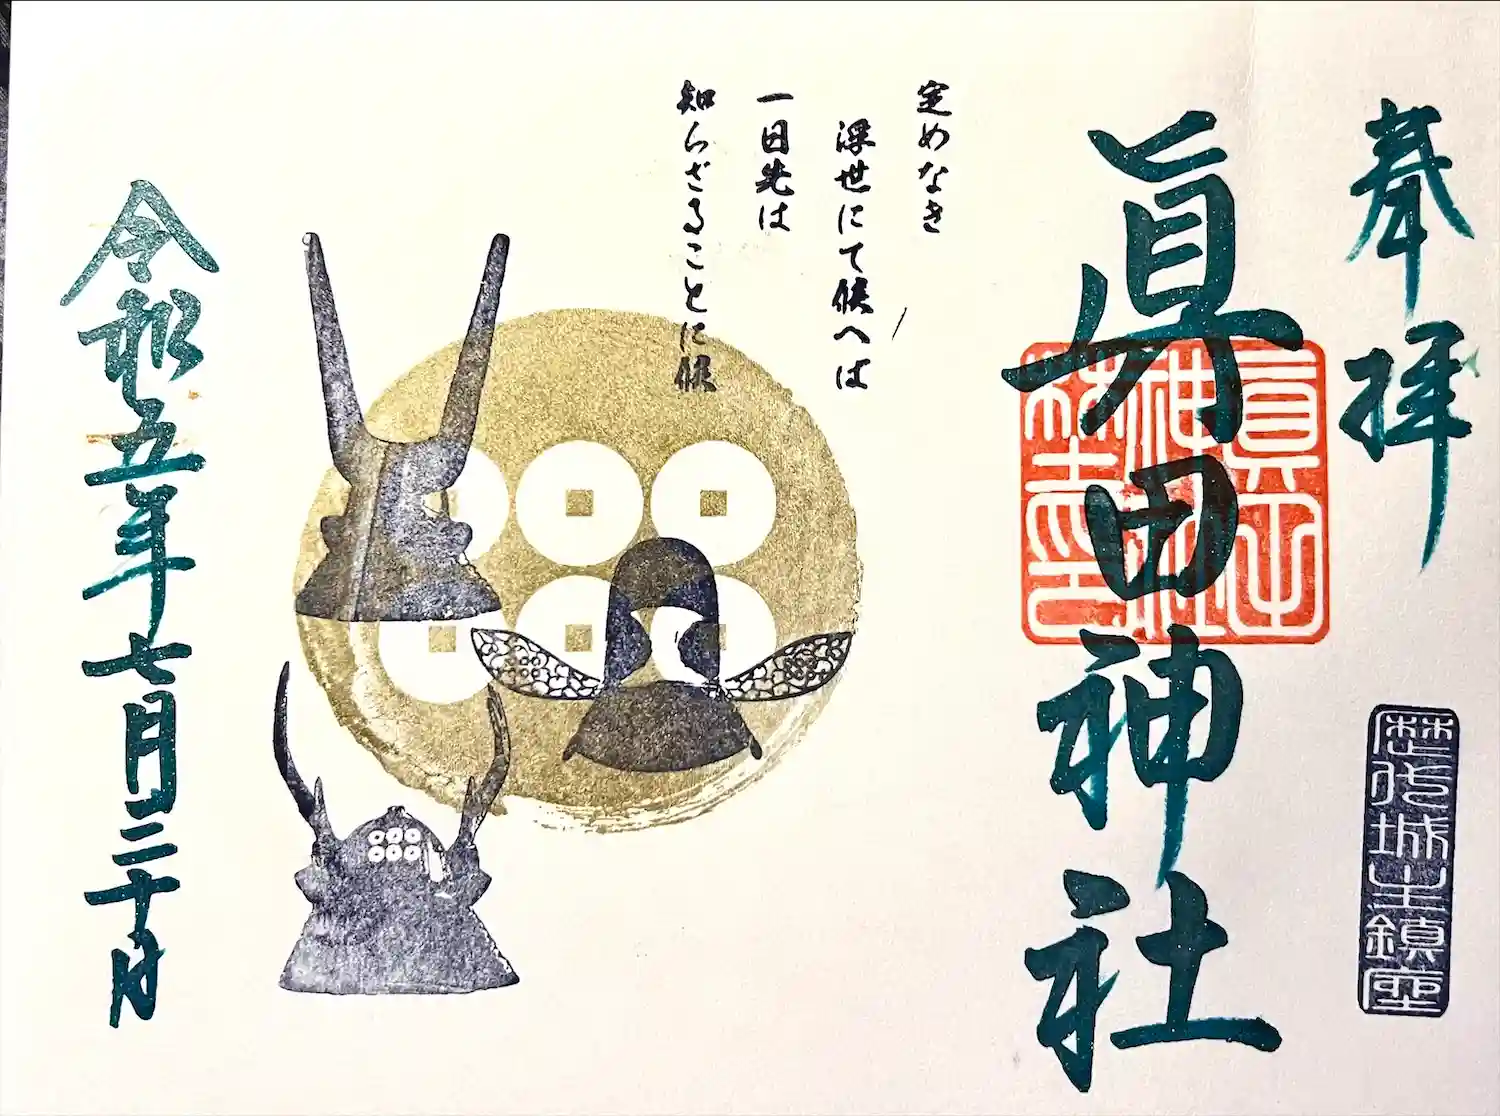 奉拝
歴代城主鎮座
眞田神社
定めなき
浮世にて候へば
一日先は
知らざることに候
令和五年七月二十日